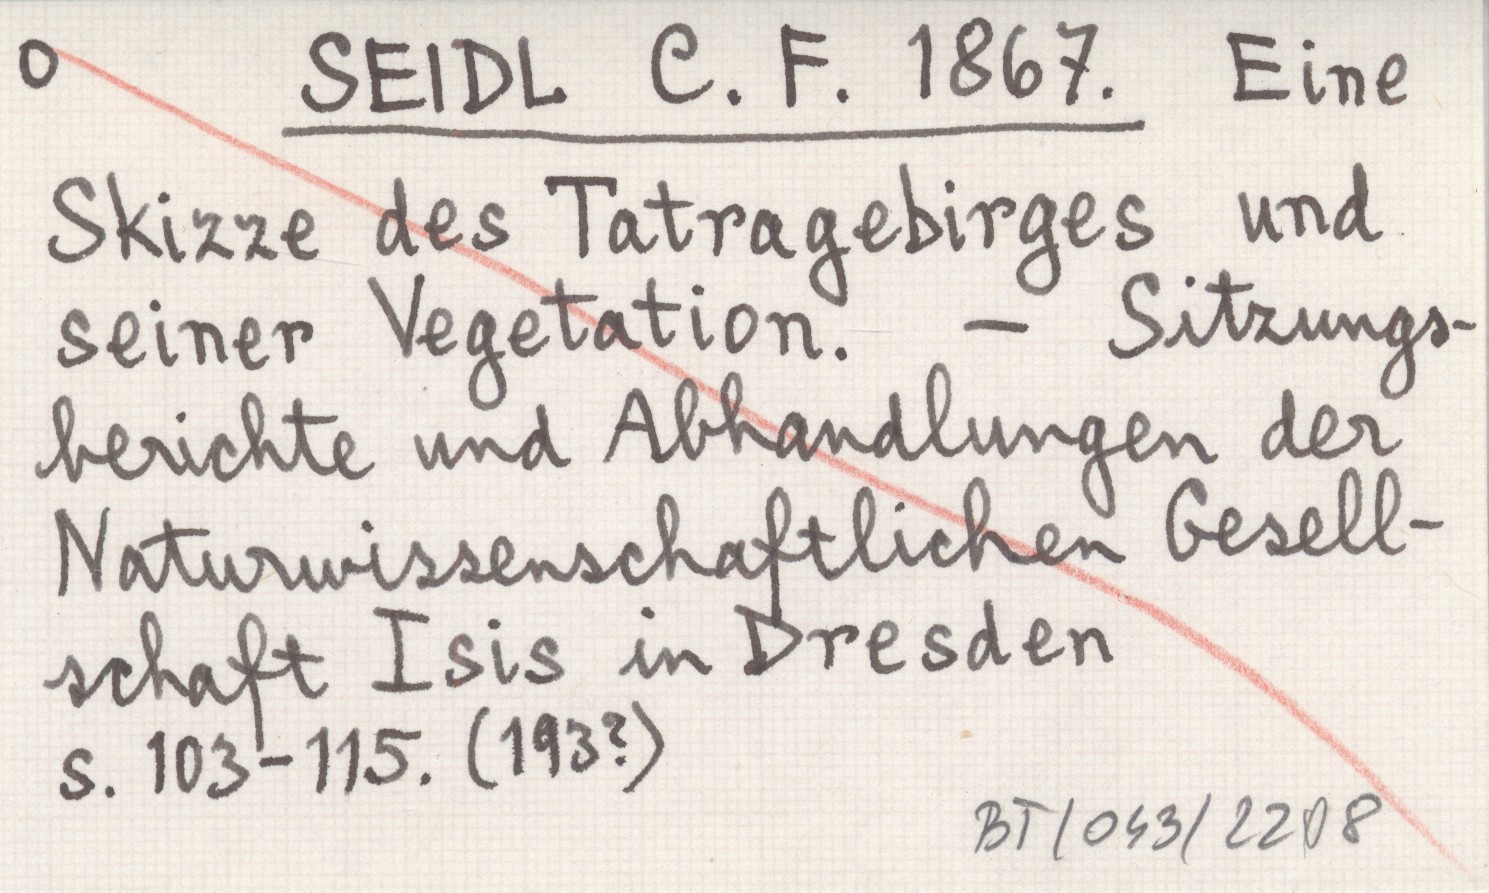 O SEIDL C. F. 1867. Eine
Skizze des Tatragebirges und
seiner Vegetation. – Sitzungs-
berichte und Abhandlungen der
Naturwissenschaftlichen Gesell-
schaft Isis in Dresden
s. 103–115. (193?)
BT/043/2208